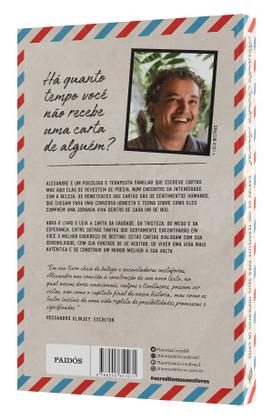 Há quanto
tempo você
não recebe
uma carta
de alguém?
ALEXANDRE É UM PSICÓLOGO E TERAPEUTA FAMILIAR QUE ESCREVE CARTAS.
MAS AQUI ELAS SE REVESTEM DE POESIA, NUM ENCONTRO DA INTENSIDADE
COM A BELEZA. OS REMETENTES DAS CARTAS SÃO OS SENTIMENTOS HUMANOS,
QUE CHEGAM PARA UMA CONVERSA HONESTA E TERNA SOBRE COMO ELES
CUMPREM UMA JORNADA VIVA DENTRO DE CADA UM DE NÓS.
ABRA O LIVRO E LEIA A CARTA DA SAUDADE, DA TRISTEZA, DO MEDO E DA
ESPERANÇA, ENTRE OUTRAS TANTAS QUE CERTAMENTE ENCONTRARÃO EM
VOCÊ O MELHOR ENDEREÇO DE DESTINO. ESTAS CARTAS DIALOGAM COM SUA
SENSIBILIDADE, COM SUA VONTADE DE SE ACEITAR, DE VIVER UMA VIDA MAIS
AUTÊNTICA E DE CONSTRUIR UM MUNDO MELHOR À SUA VOLTA.
"Em seu livro cheio de beleza e encantadoras metáforas,
Alexandre nos convida à construção de um novo texto, no
qual nossas dores emocionais, culpas e limitações, possam ser
vistas, não como o capítulo final de nossa história, mas como os
textos iniciais de uma vida repleta de possibilidades promissoras e
significados."
ROSSANDRO KLINJEY, ESCRITOR
PAIDÓS
PlanetaLivrosBR
planetadelivrosbrasil
PlanetadeLivrosBrasil
planetadelivros.com.br
#acreditamosnoslivros